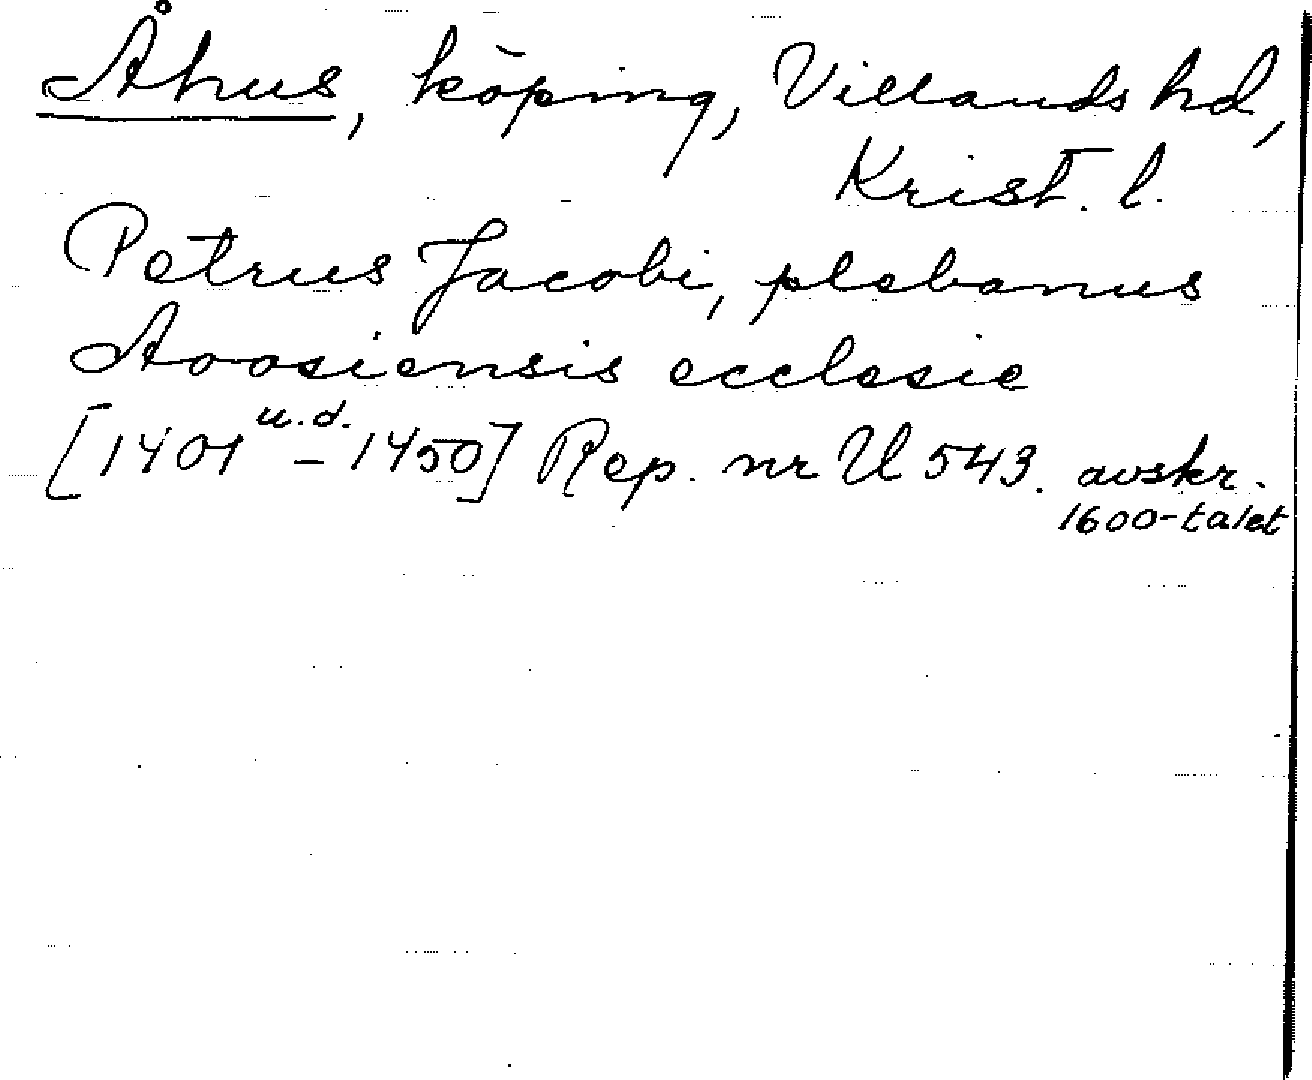 Åhus, köping, Villands hd,
Krist. l.
Petrus Jacobi, plebanus
Aoosiensis ecclesie
[1401 u.d. – 1450] Rep. nr U 543. avskr.
1600-talet